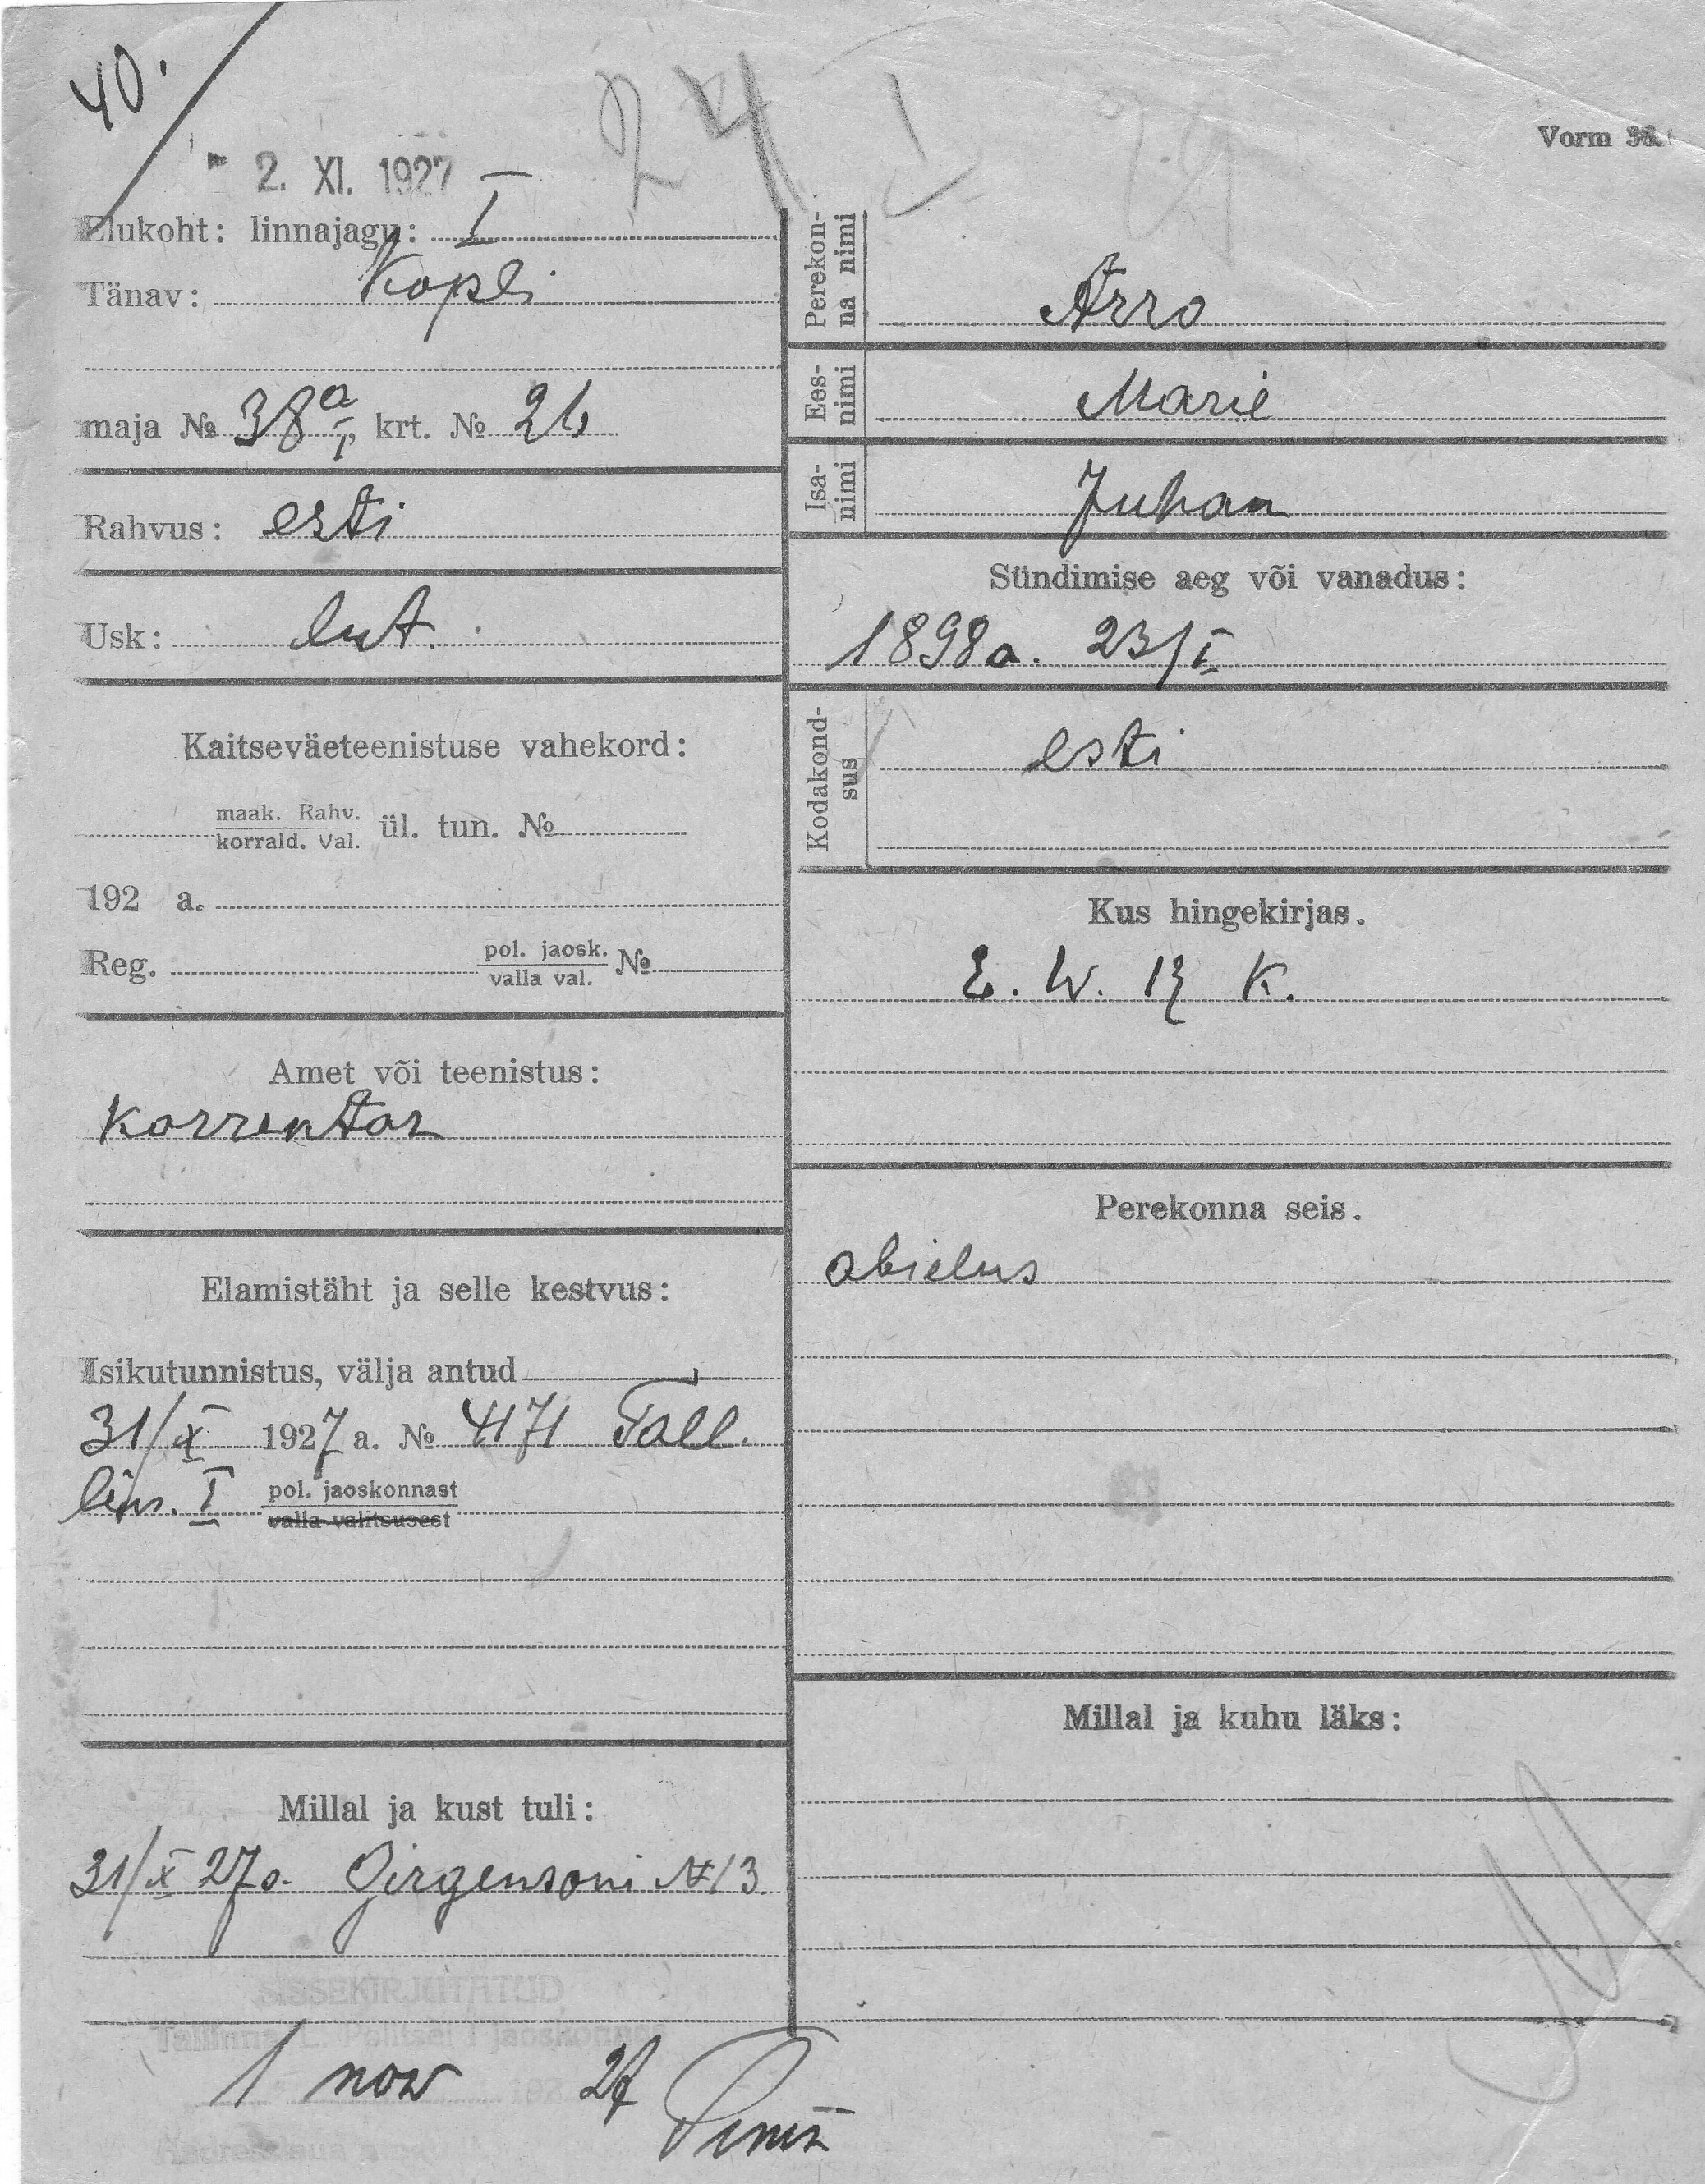 40.
24 I 29
Vorm 36.
2. XI. 1927
Elukoht: linnajagu: I
Tänav: Kopli
maja № 38a I, krt. № 26
Rahvus: esti
Usk: lut.
Kaitseväeteenistuse vahekord:
maak. Rahv.
korrald. Val. ül. tun. №
192 a.
Reg. pol. jaosk. №
valla val.
Amet või teenistus:
Korrentor
Elamistäht ja selle kestvus:
Isikutunnistus, välja antud
31/X 1927 a. № 4171 Tall.
linn. I pol. jaoskonnast
valla valitsusest
Millal ja kust tuli:
31/X 27 a. Girgensoni №13
SISSEKIRJUTATUD
Tallinna L. Politsei I jaoskonnas
1 now 192 27
Perekon-
na nimi Arro
Ees-
nimi Marie
Isa-
nimi Juhan
Sündimise aeg või vanadus:
1898 a. 23/I
Kodakond-
sus esti
Kus hingekirjas.
E. W. K.
Perekonna seis.
abielus
Millal ja kuhu läks: